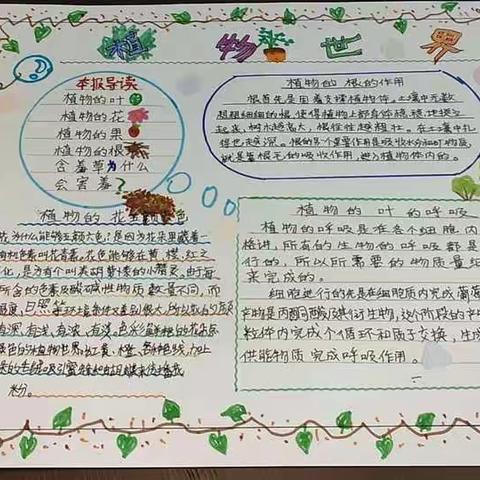 植物世界
本报导读
植物的叶
植物的花
植物的果
植物的根
含羞草为什么
会害羞？
植物的根的作用
根首先是固着支撑植物体。土壤中无数
粗粗细细的根，使得植物上部身体稳稳地挺立
起来，树木越高大，根往往越粗壮。在土壤中扎
得也越深。根的另一个重要作用是吸收水分和矿物质，
就是靠根毛的吸收作用，进入植物体内的。
植物的花五颜六色
花为什么能够五颜六色；是因为花朵里藏着一
花青素，花色能够在黄、橙、红之
化，是为有个叫类胡萝卜的小精灵，由于每
所含的色素及酸碱性物质数量不同，而
温度，日照等环境条件差别很大，所以花的颜
有深，有浅，有浓，有淡。色彩鲜艳的花朵后
粉。
植物的叶的呼吸
植物的呼吸是在各个细胞内
格讲，所有的生物的呼吸都是
行的，所以所需要的物质量组
来完成的。
细胞进行的先是在细胞质内完成葡萄
产物是丙酮酸及其衍生物，这个阶段的产
粒体内完成个循环和质子交换，生成
供能物质完成呼吸作用。